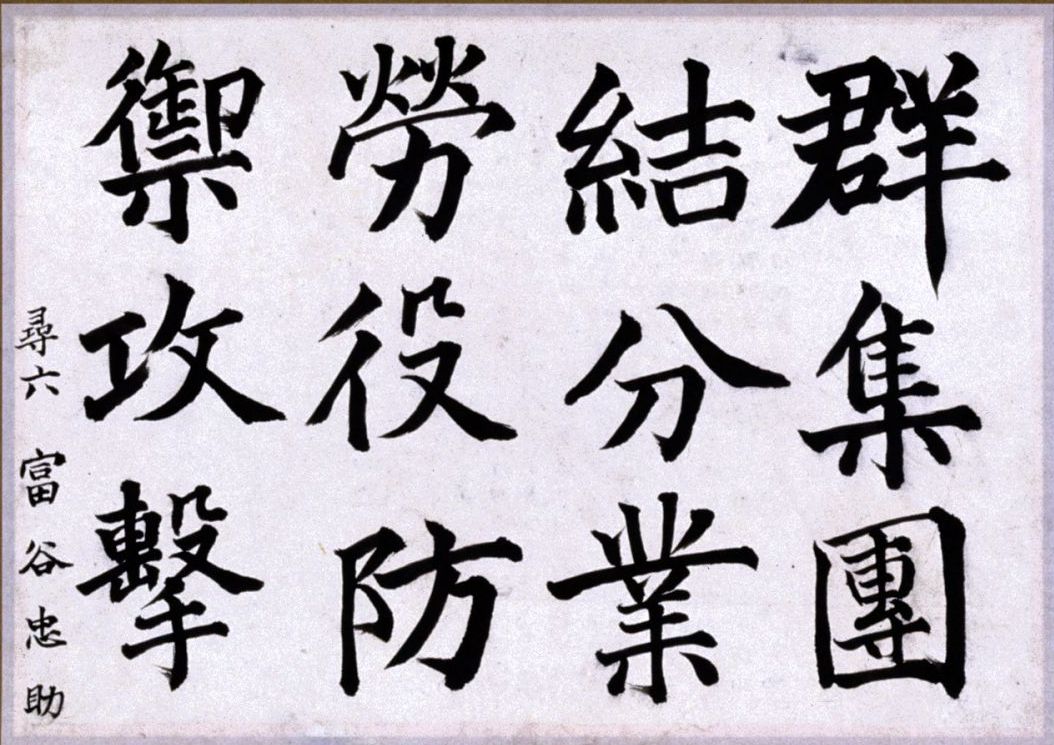 群集團
結分業
勞役防
禦攻擊
尋六 富谷忠助